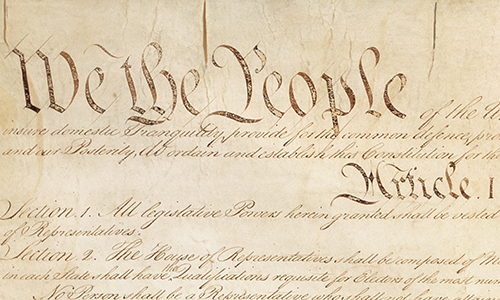 We the People of the U
insure domestic Tranquility, provide for the common defence, pro
and our Posterity, do ordain and establish this Constitution for th
Article. I
Section. 1. All legislative Powers herein granted shall be vested
of Representatives.
Section. 2. The House of Representatives shall be composed of M
in each State shall have the Qualifications requisite for Electors of the most num
No Person shall be a Representative who shall not have